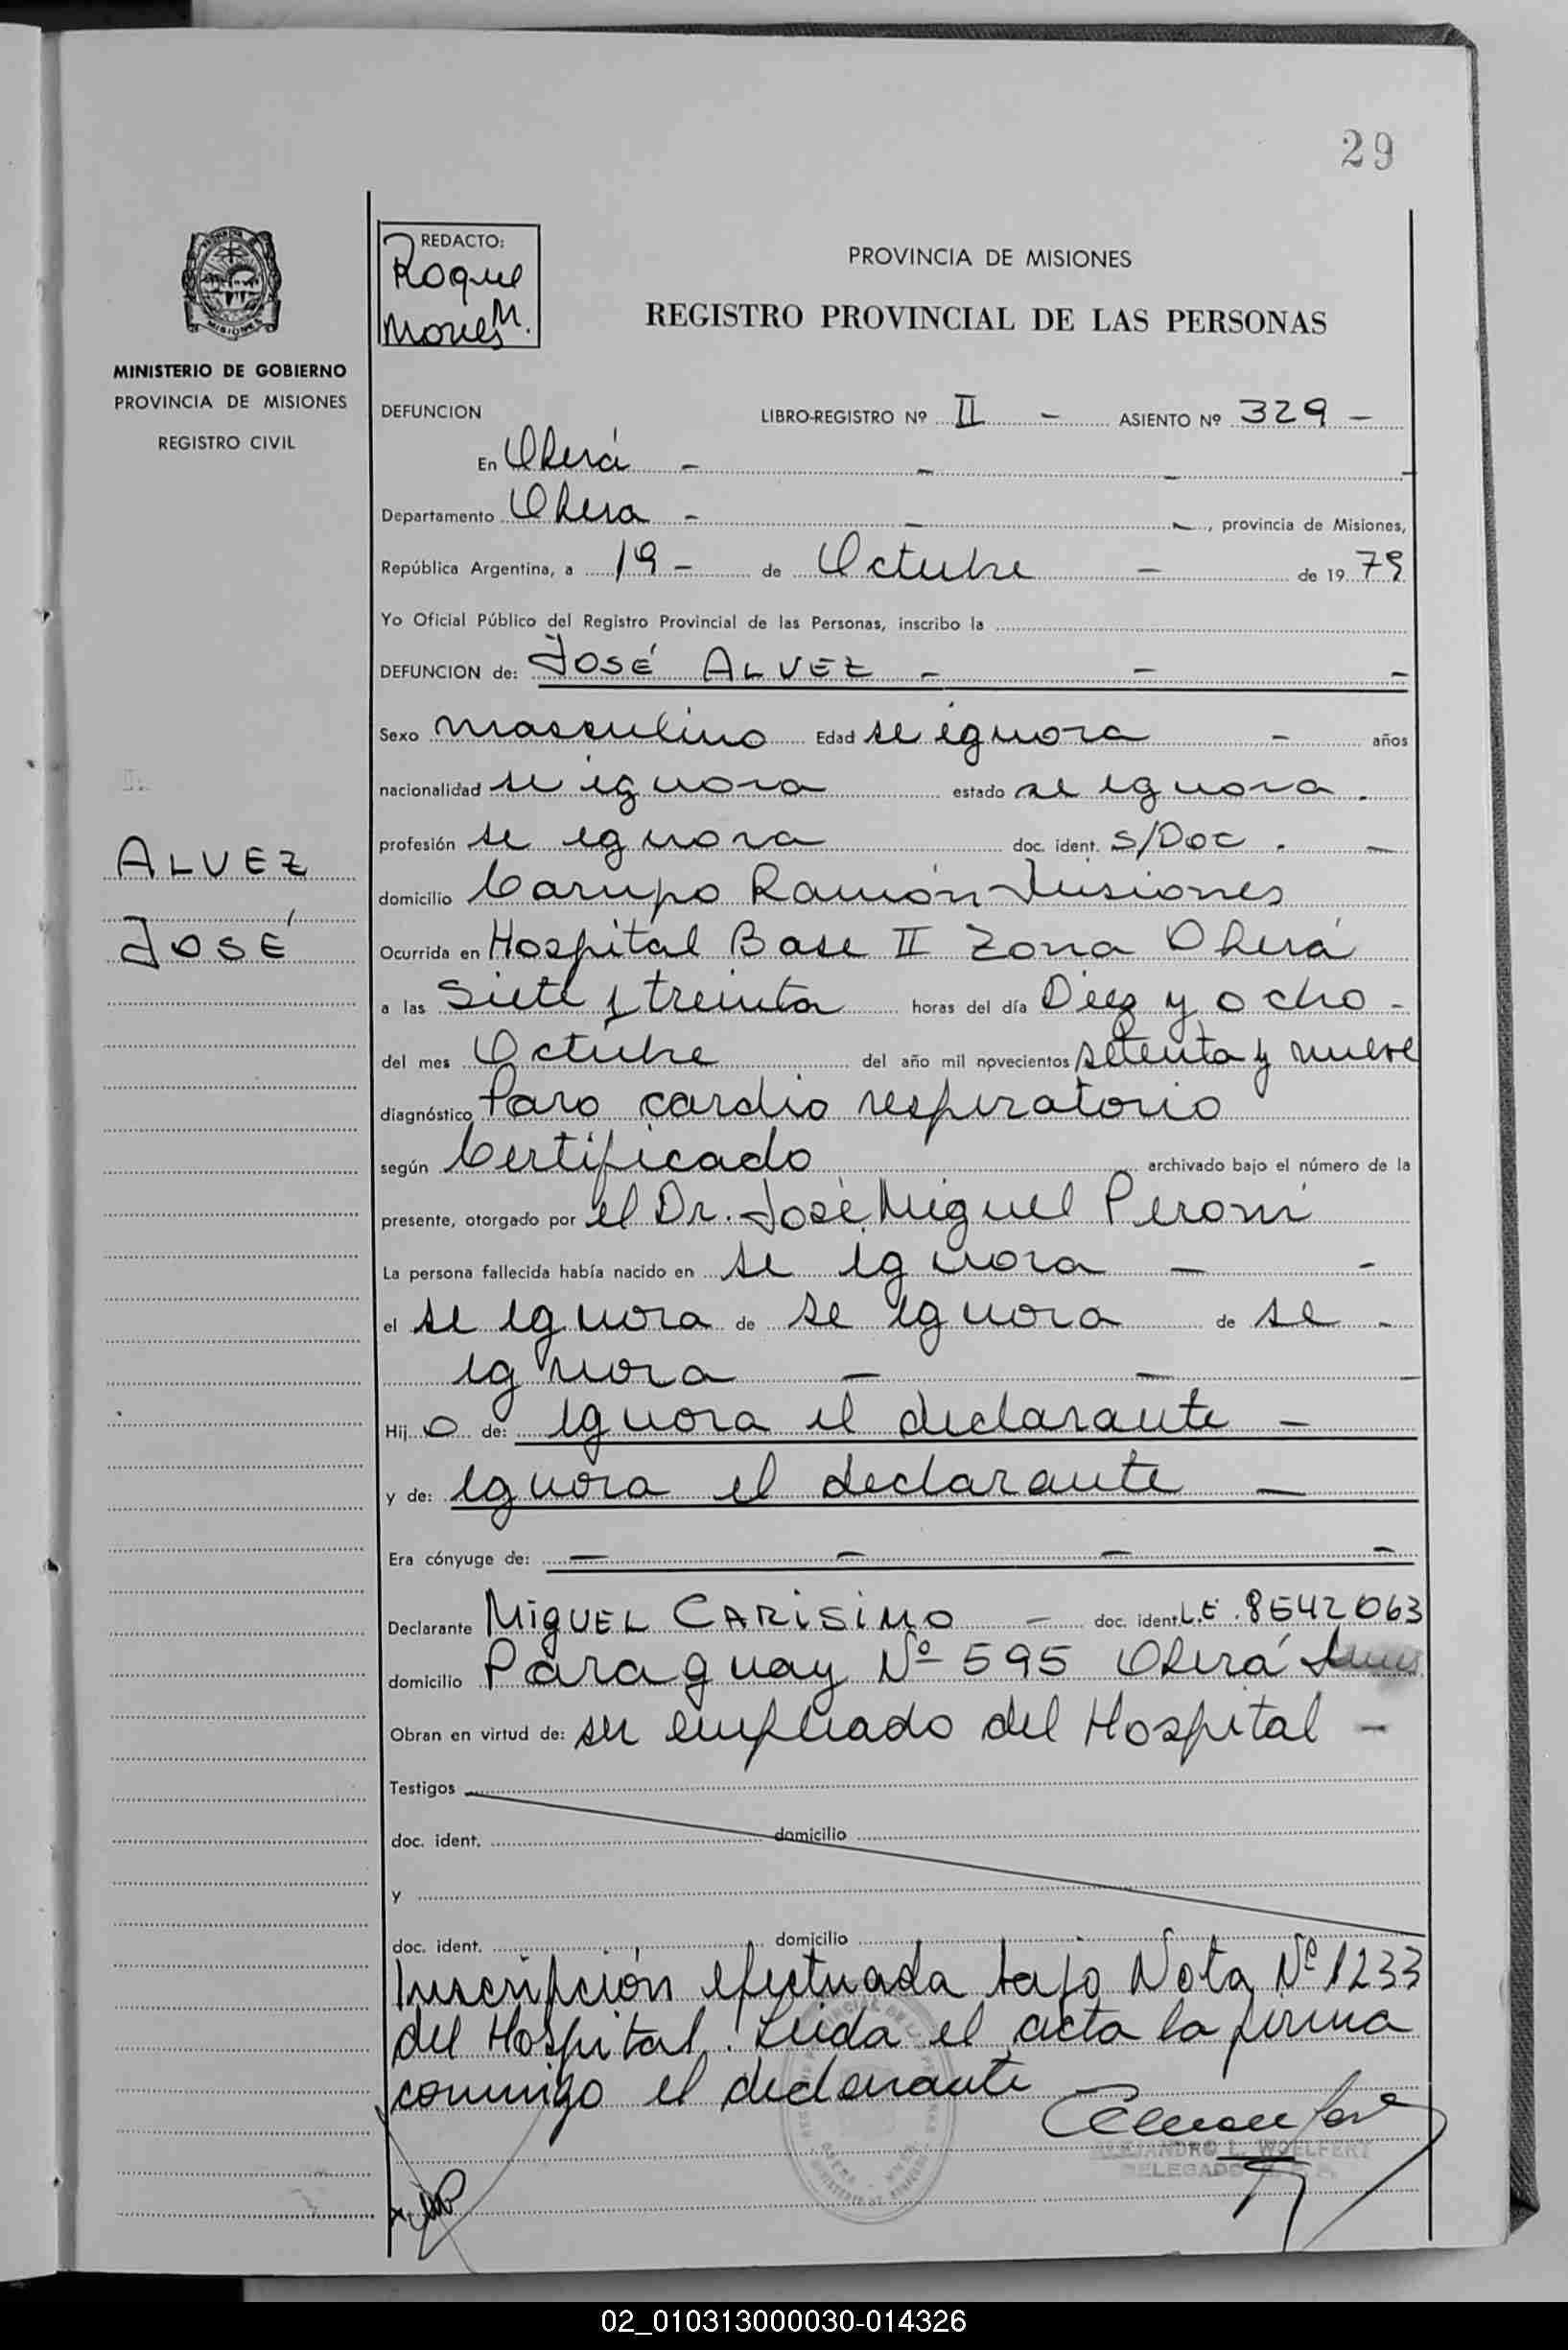 29
REDACTO:
Roque
M.
PROVINCIA DE MISIONES
REGISTRO PROVINCIAL DE LAS PERSONAS
MISIONES
MINISTERIO DE GOBIERNO
PROVINCIA DE MISIONES
REGISTRO CIVIL
DEFUNCION LIBRO-REGISTRO Nº II - ASIENTO Nº 329 -
En Oberá - - - -
Departamento Obera - - -, provincia de Misiones,
República Argentina, a 19 - de Octubre - de 1979
Yo Oficial Público del Registro Provincial de las Personas, inscribo la
DEFUNCION de: JOSÉ ALVEZ - - -
Sexo masculino Edad se ignora - años
nacionalidad se ignora estado se ignora .
profesión se ignora doc. ident. S/Doc . -
ALVEZ
JOSÉ
domicilio Campo Ramón Misiones
Ocurrida en Hospital Base II Zona Oberá
a las Siete y treinta horas del día Diez y ocho -
del mes Octubre del año mil novecientos setenta y nueve
diagnóstico Paro cardio respiratorio
según Certificado archivado bajo el número de la
presente, otorgado por el Dr. José Miguel Peroni
La persona fallecida había nacido en se ignora - -
el se ignora de se ignora de se -
ignora - - -
Hijo de: ignora el declarante -
y de: ignora el declarante -
Era cónyuge de: - - - -
Declarante MIGUEL CARISIMO - doc. ident. L.E. 8542063
domicilio Paraguay Nº 595 Oberá
Obran en virtud de: ser empleado del Hospital -
Testigos
doc. ident. domicilio
y
doc. ident. domicilio
Inscripción efectuada bajo Nota Nº 1233
del Hospital. Leida el acta la firma
conmigo el declarante
ALEJANDRO L. WOELFERT
DELEGADO
02_010313000030-014326